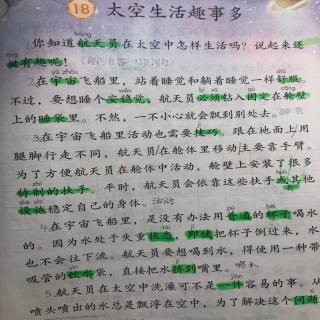 18 太空生活趣事多
háng
1.你知道航天员在太空中怎样生活吗？说起来还
tǐng
挺有趣呢！
yǔ zhòu
2.在宇宙飞船里，站着睡觉和躺着睡觉一样舒服。
不过，要想睡个安稳觉，航天员必须钻入固定在舱壁
上的睡袋里。不然，一不小心就会飘到别处去。
3.在宇宙飞船里活动也需要技巧。跟在地面上用
腿脚行走不同，航天员在舱体里移动主要靠手臂。
为了方便航天员在舱体中活动，舱壁上安装了很多
特制的扶手。平时，航天员会依靠这些扶手或其他
设施稳定自己的身体。活动
4.在宇宙飞船里，是没有办法用普通的杯子喝水
的。因为水处于失重状态，即使把杯子倒过来，水
也不会往下流。航天员要想喝到水，得使用一种带
吸管的饮水袋，直接把水挤到嘴里。喝水
5.航天员在太空中洗澡可不是一件容易的事。从
喷头喷出的水总是飘浮在空中，为了解决这个问题